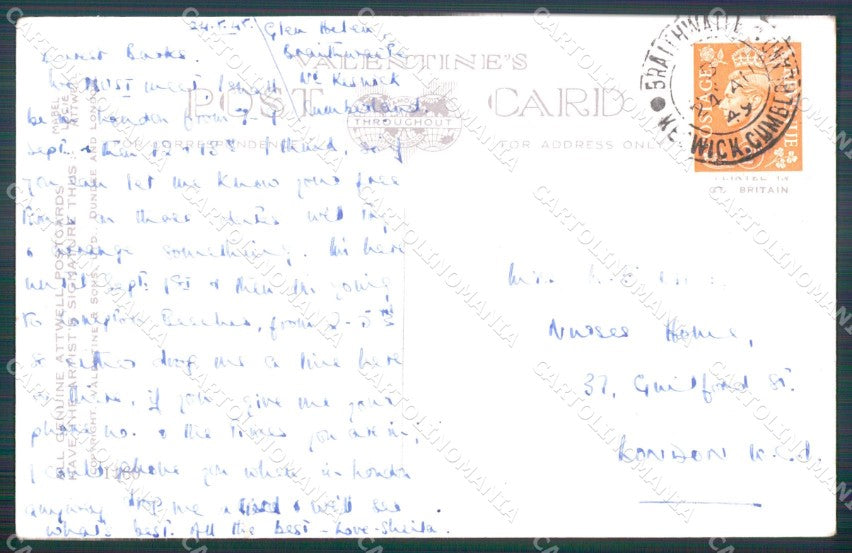 24.8.45
Glen Helen,
Braithwaite
Nr Keswick
Cumberland.
Dearest Barbs.
We MUST meet I shall
be in London from 7-9
Sept. & then 12 & 13th I think, say
you can let me know your free
times on those dates will try
& arrange something. Im here
until Sept. 1st & then Im going
to Beaches, from 2-5th
So either drop me a line here
or there, if you give me your
phone no. & the times you are in,
I could phone you when in London
anyway drop me a card & will see
what's best. All the best - Love - Sheila.
VALENTINE'S
POST CARD
THROUGHOUT
FOR CORRESPONDENCE
FOR ADDRESS ONLY
ALL GENUINE ATTWELL POSTCARDS
HAVE THE ARTIST'S SIGNATURE THUS:
MABEL
LUCIE
ATTWELL
COPYRIGHT, VALENTINE & SONS, LTD., DUNDEE AND LONDON
BRAITHWAITE
KESWICK. CUMBERLAND
POSTAGE
PRINTED IN
GT. BRITAIN
Miss
Nurses Home,
37, Guilford St.
LONDON W.C.1.
CARTOLINOMANIA